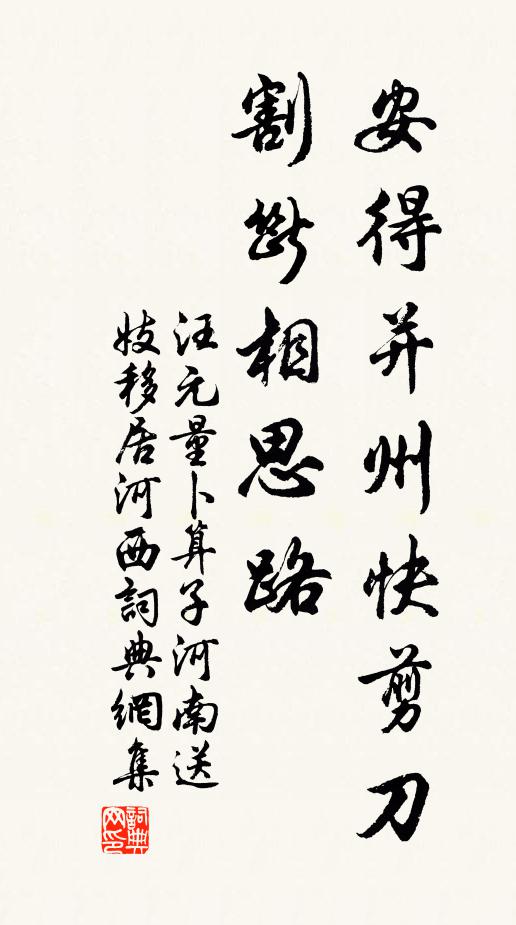 安得并州快剪刀
割斷相思路
汪元量卜算子河南送
妓移居河西詞典網集
詞典网印